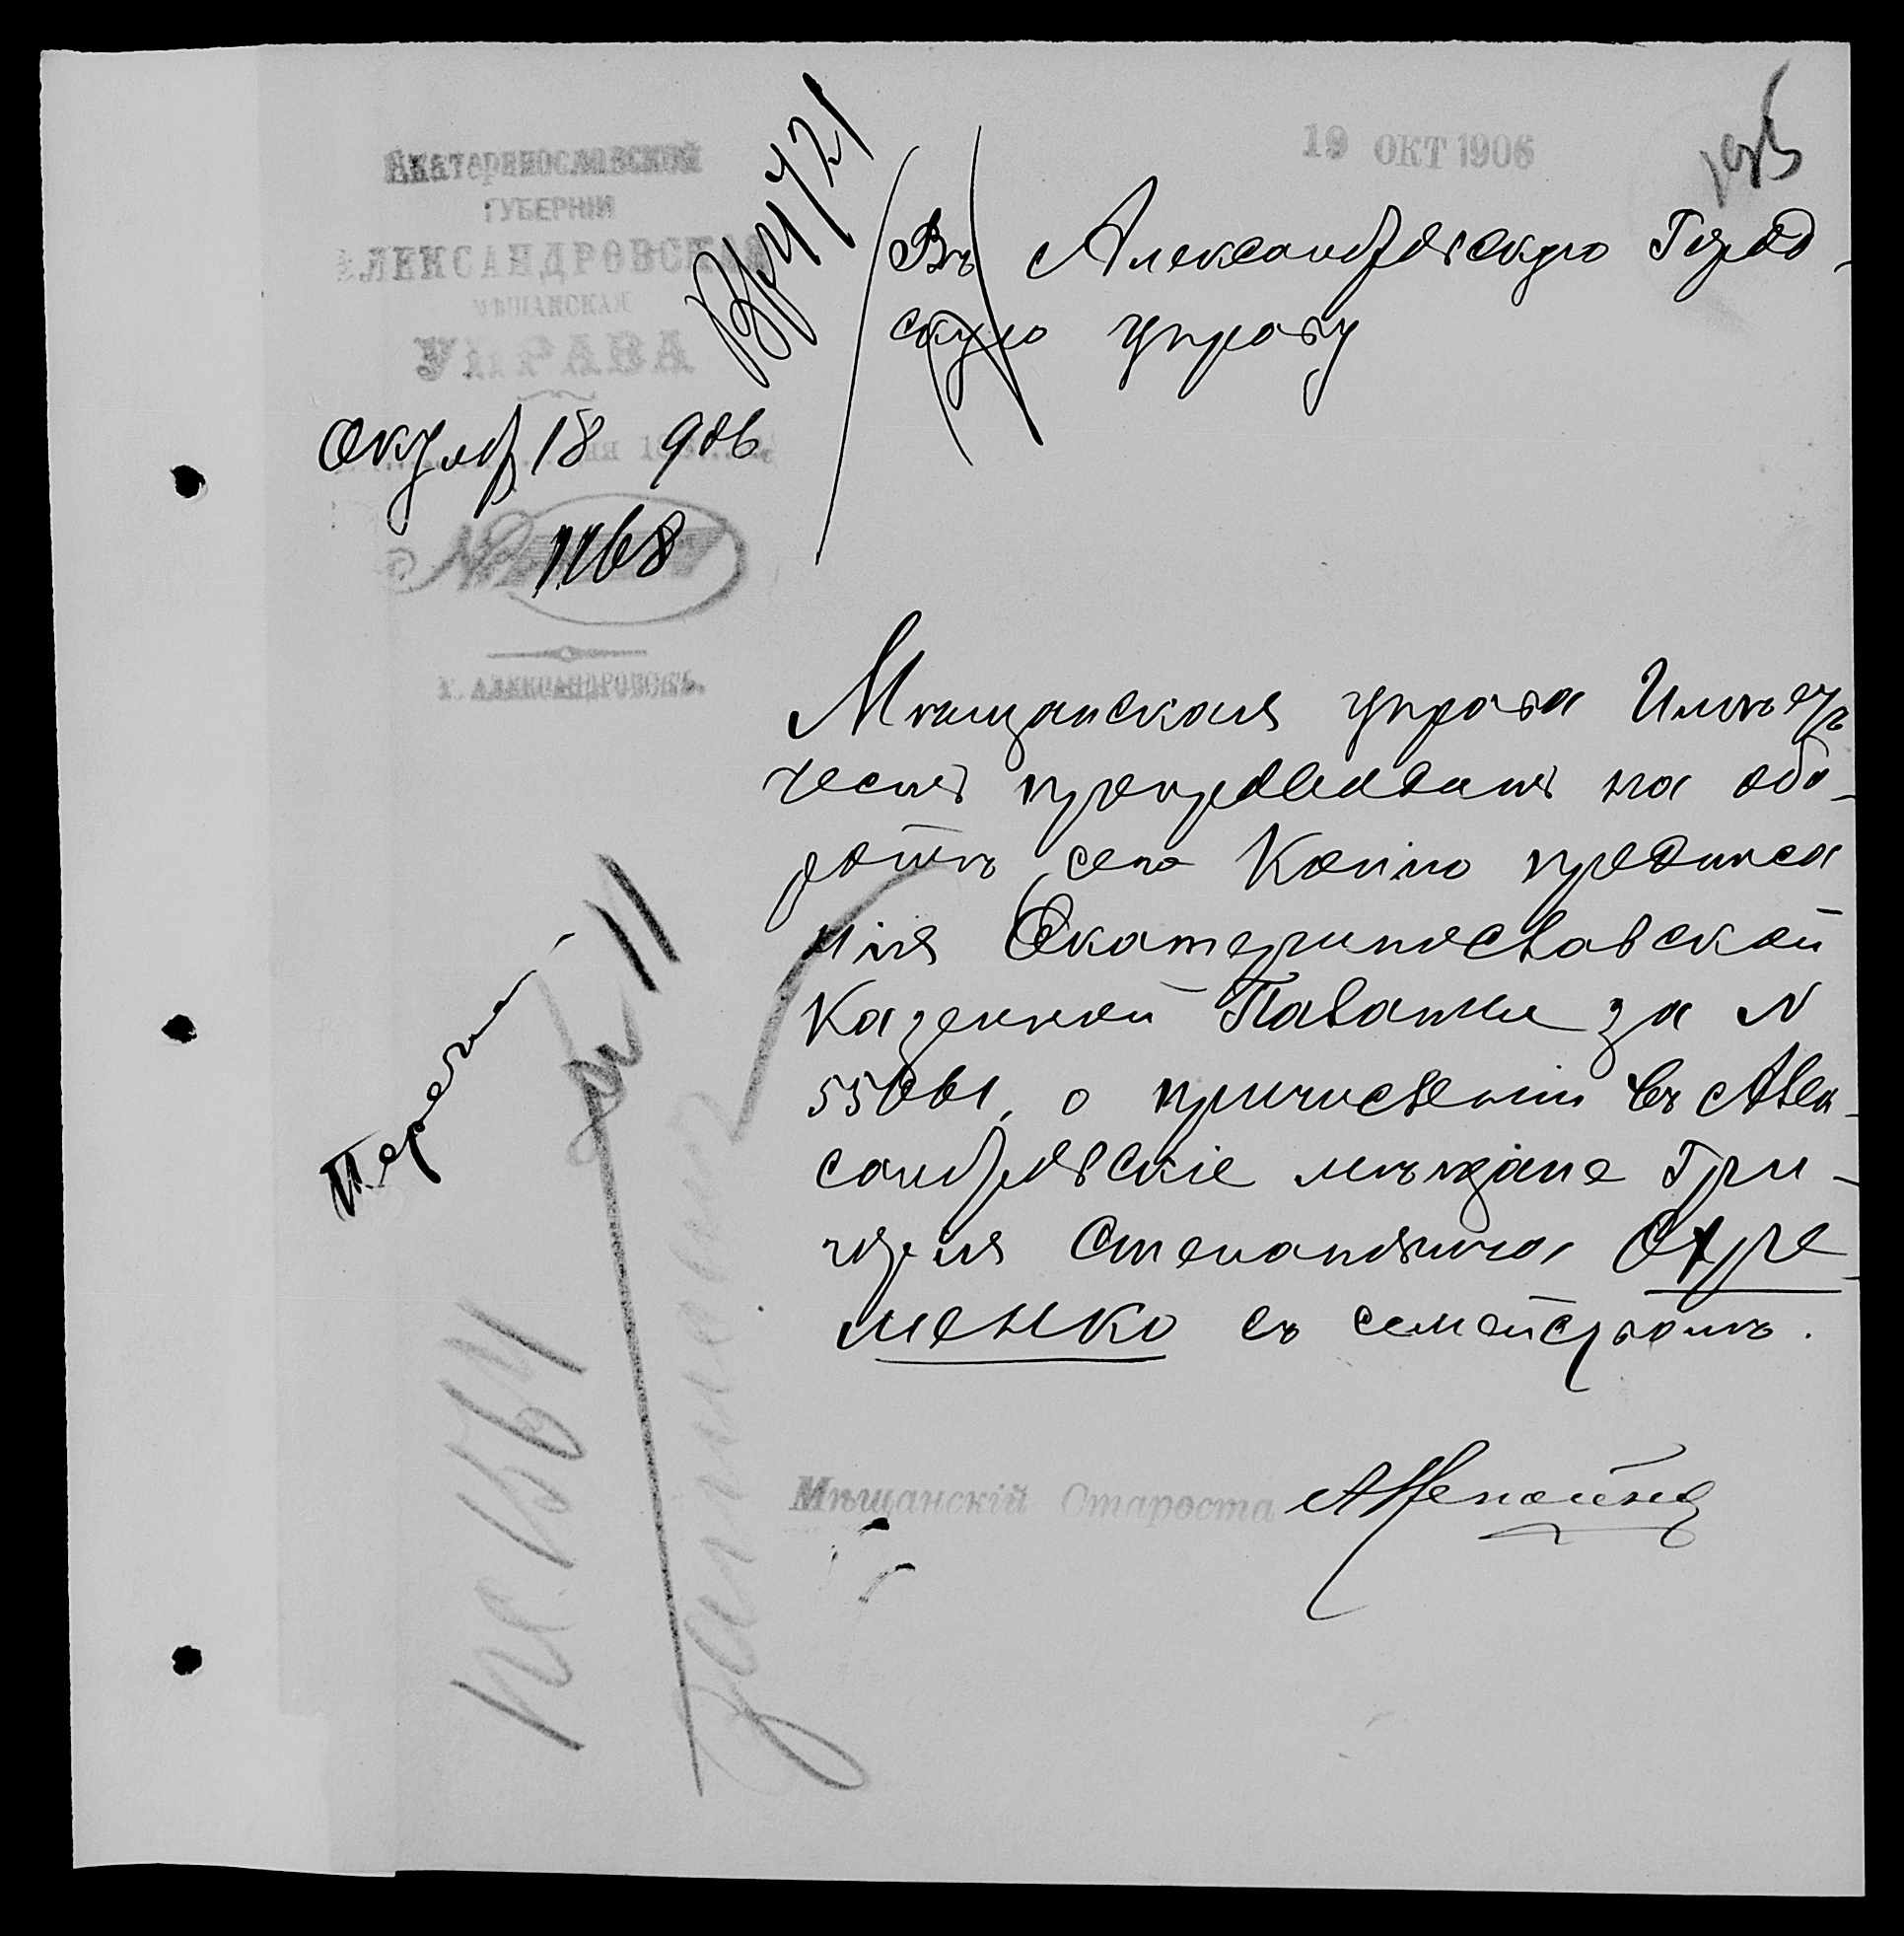 19 ОКТ 1906
Екатеринославской
ГУБЕРНІИ
АЛЕКСАНДРОВСКАЯ
МѢЩАНСКАЯ
УПРАВА
Октяб 18 906
№ 1168
Г. АЛЕКСАНДРОВСКЪ.
Въ Александровскую Город-
скую управу
Мѣщанская управа Имѣетъ
честь препроводить на обо-
ротѣ сего Копію предписа
нія Екатеринославской
Казенной Палаты за N
55661, о причисленіи въ Алек-
сандровскіе мѣщане Гри-
горія Степановича Охре-
менко съ семействомъ.
Мѣщанскій Староста